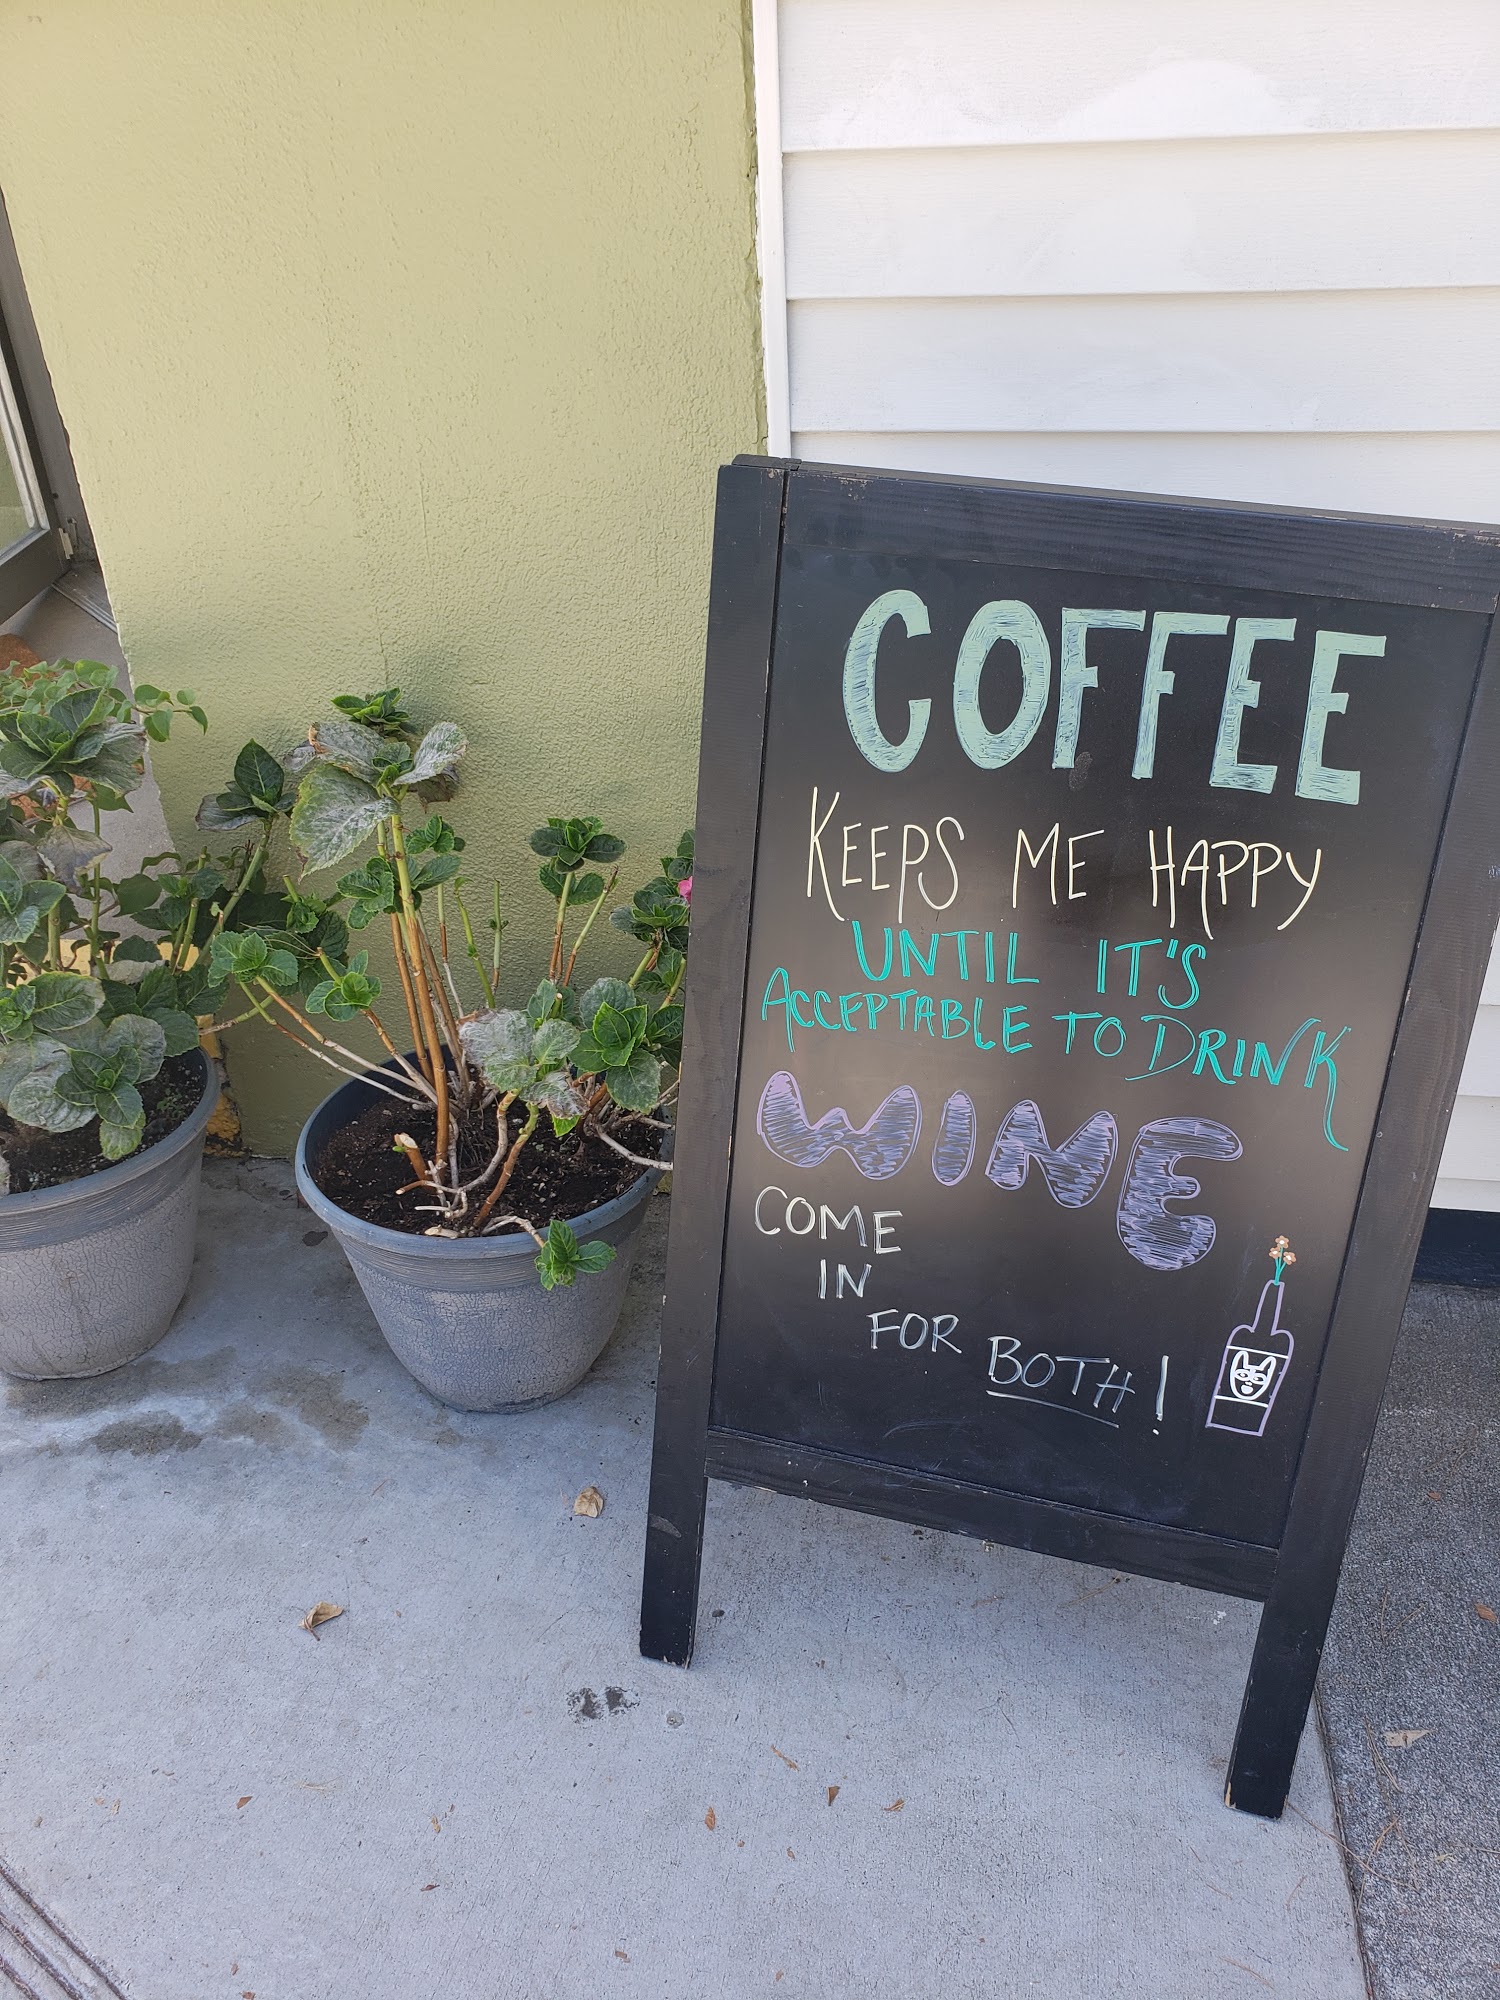 COFFEE
KEEPS ME HAPPY
UNTIL IT'S
ACCEPTABLE TO DRINK
WINE
COME
IN
FOR BOTH!